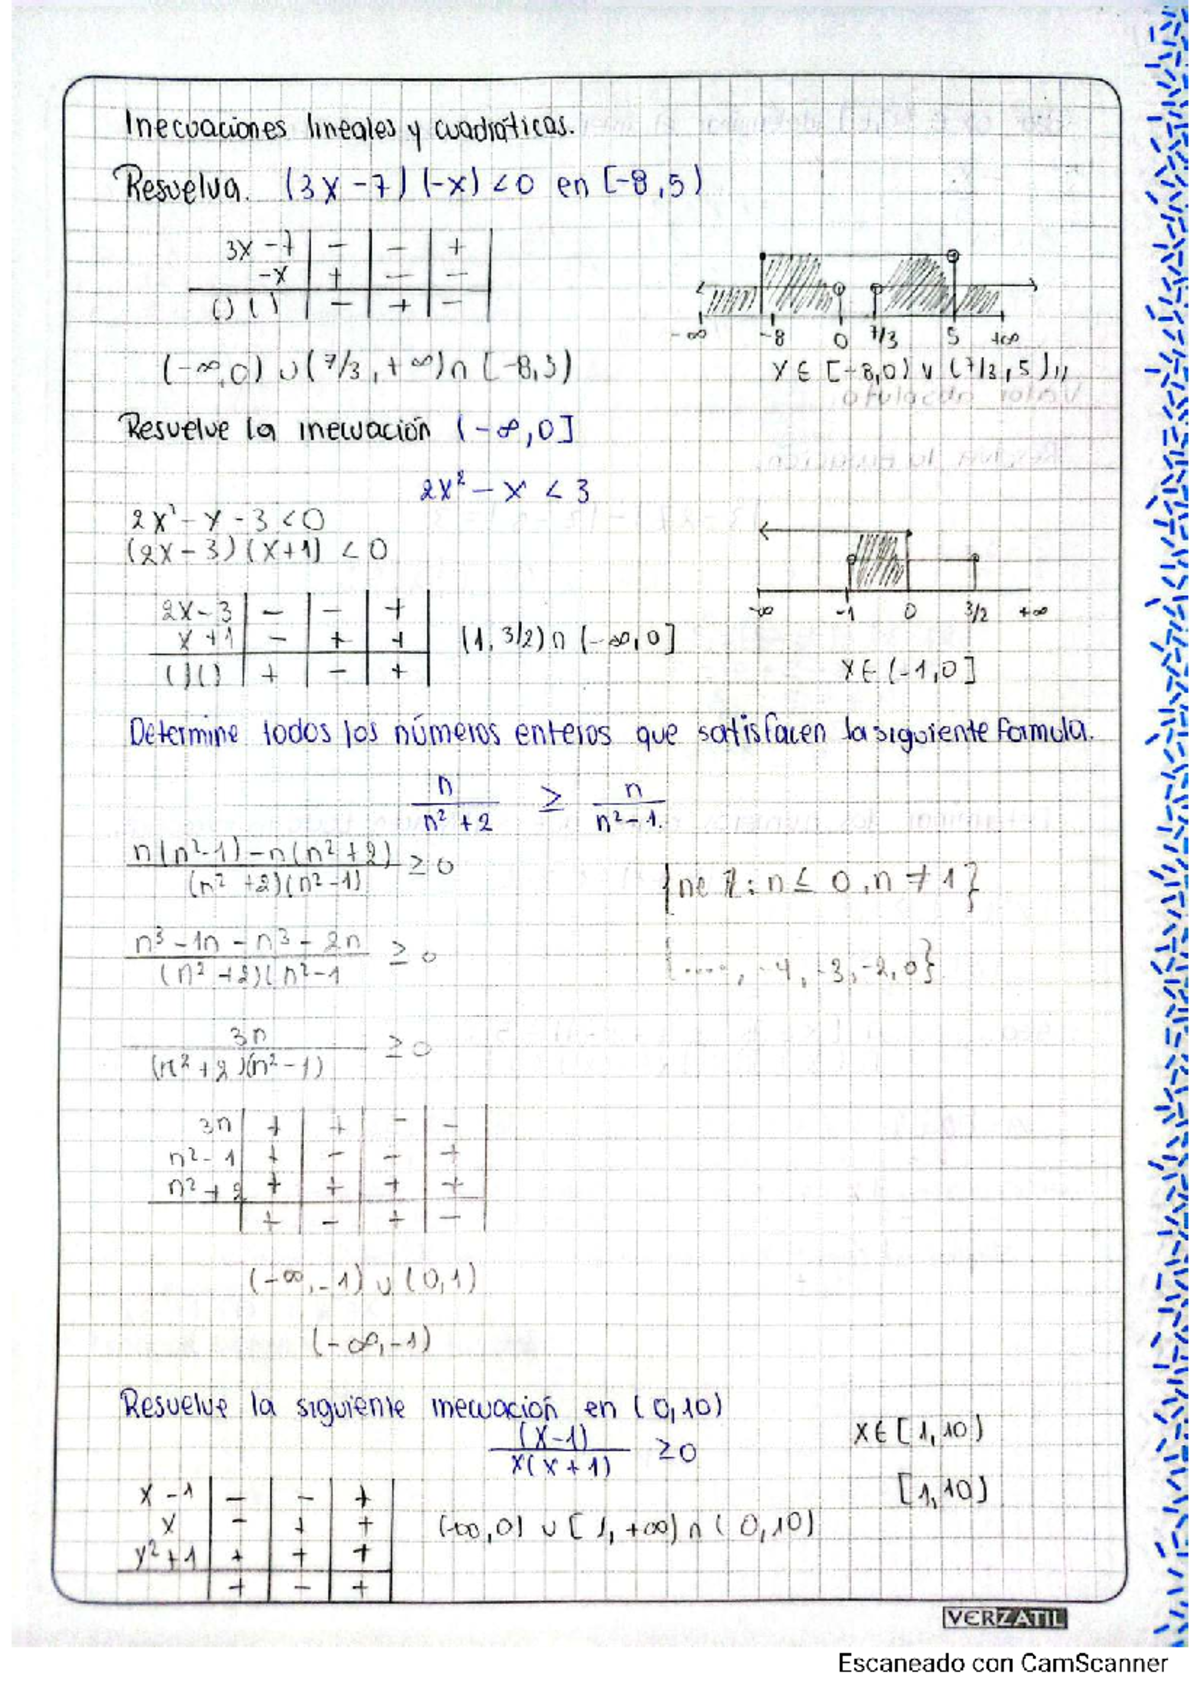 Inecuaciones lineales y cuadráticas.
Resuelva. (3x - 7) (-x) < 0 en [-8,5)
3x - 7 | - | - | +
-x | + | - | -
( ) ( ) | - | + | -
-∞ -8 0 7/3 5 +∞
(-∞,0) ∪ (7/3, +∞) ∩ [-8,5)
x ∈ [-8,0) ∪ (7/3, 5)
Valor absoluto
Resuelve la inecuación (-∞,0]
2x² - x < 3
2x² - x - 3 < 0
(2x - 3) (x+1) < 0
-∞ -1 0 3/2 +∞
2x - 3 | - | - | +
x + 1 | - | + | +
( ) ( ) | + | - | +
(1, 3/2) ∩ (-∞,0]
x ∈ (-1,0]
Determine todos los números enteros que satisfacen la siguiente formula.
n/(n² + 2) ≥ n/(n² - 1.)
(n(n²-1) - n(n² + 2))/((n² + 2)(n² - 1)) ≥ 0
{n ∈ ℤ : n ≤ 0, n ≠ 1}
(n³ - 1n - n³ - 2n)/((n² + 2)(n² - 1 ≥ 0
{...., -4, -3, -2, 0}
3n/((n² + 2)(n² - 1)) ≥ 0
3n | + | + | - | -
n² - 1 | + | - | - | +
n² + 2 | + | + | + | +
| + | - | + | -
(-∞, -1) ∪ (0,1)
(-∞, -1)
Resuelve la siguiente inecuación en (0,10)
(x-1)/(x(x + 1)) ≥ 0
x ∈ [1,10)
[1,10)
x - 1 | - | - | +
x | - | + | +
x² + 1 | + | + | +
| + | - | +
(-∞,0) ∪ [1, +∞) ∩ (0,10)
VERZATIL
Escaneado con CamScanner